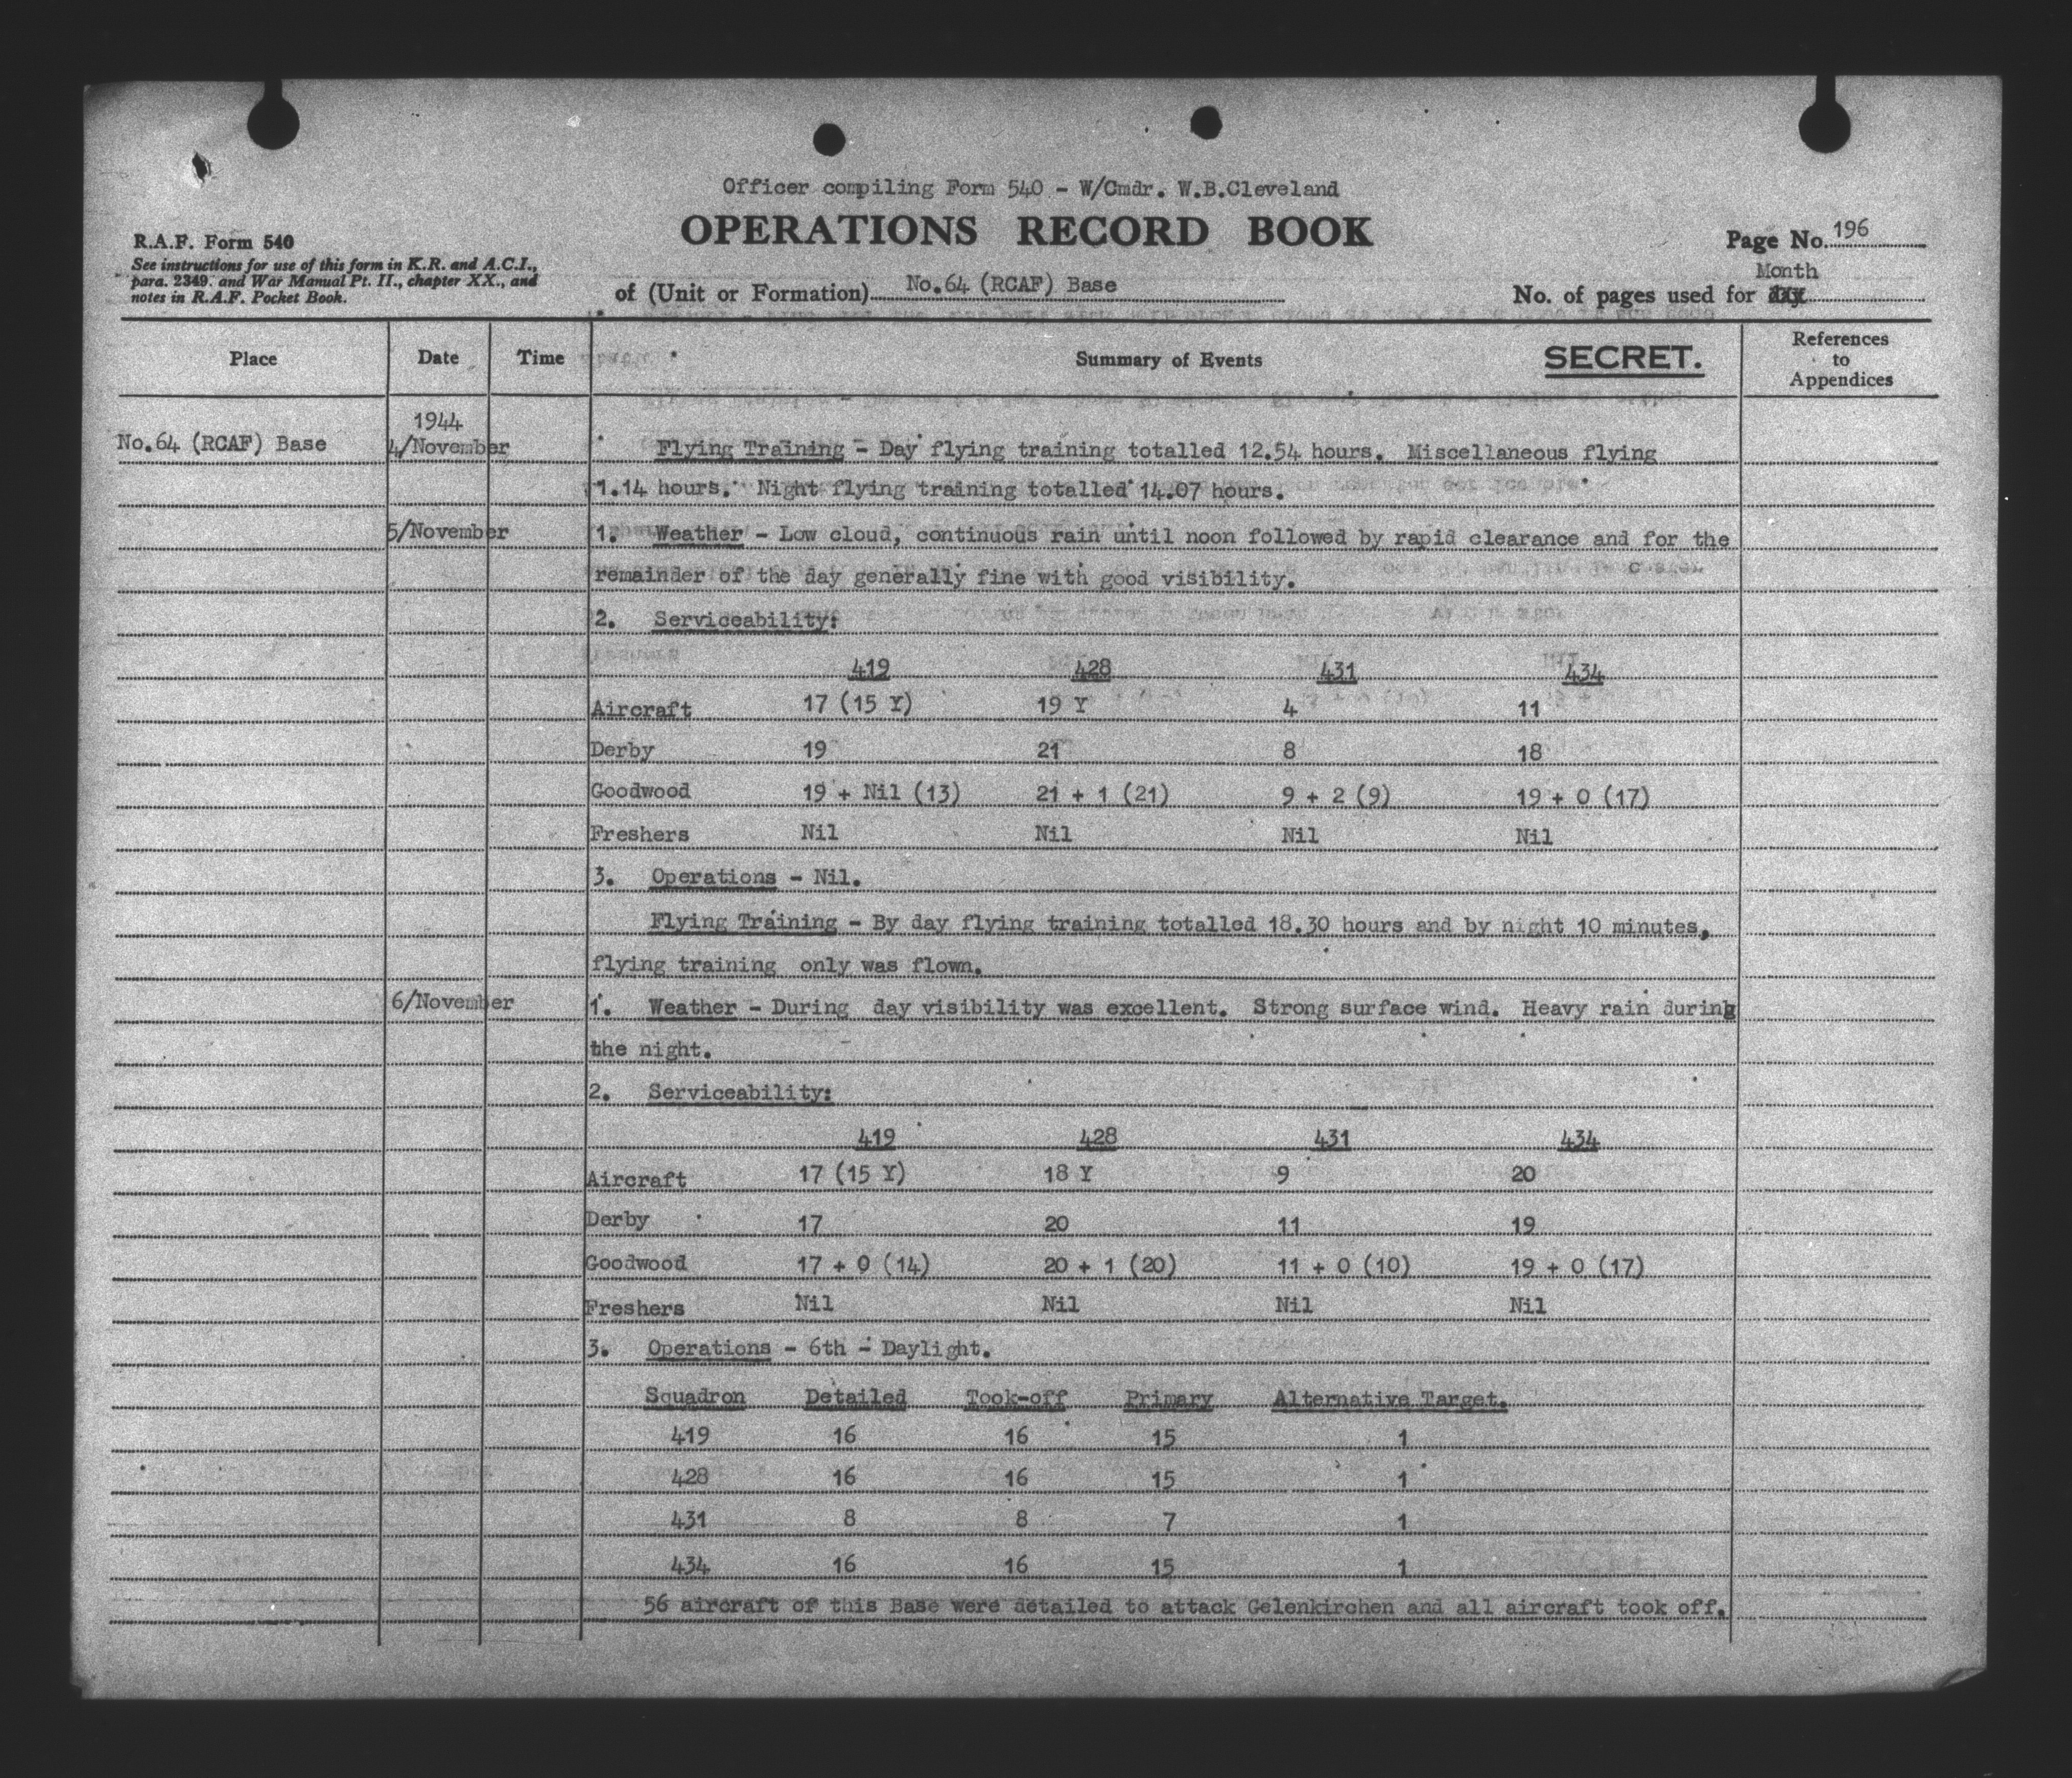 Officer compiling Form 540 - W/Cmdr. W.B.Cleveland
OPERATIONS RECORD BOOK
R.A.F. Form 540
See instructions for use of this form in K.R. and A.C.I.,
para. 2349. and War Manual Pt. II., chapter XX., and
notes in R.A.F. Pocket Book.
Page No. 196
of (Unit or Formation) No.64 (RCAF) Base
Month
No. of pages used for day
Place Date Time Summary of Events SECRET. References to Appendices
1944
No.64 (RCAF) Base 4/November Flying Training - Day flying training totalled 12.54 hours. Miscellaneous flying
1.14 hours. Night flying training totalled 14.07 hours.
5/November 1. Weather - Low cloud, continuous rain until noon followed by rapid clearance and for the
remainder of the day generally fine with good visibility.
2. Serviceability:
419 428 431 434
Aircraft 17 (15 Y) 19 Y 4 11
Derby 19 21 8 18
Goodwood 19 + Nil (13) 21 + 1 (21) 9 + 2 (9) 19 + 0 (17)
Freshers Nil Nil Nil Nil
3. Operations - Nil.
Flying Training - By day flying training totalled 18.30 hours and by night 10 minutes,
flying training only was flown.
6/November 1. Weather - During day visibility was excellent. Strong surface wind. Heavy rain during
the night.
2. Serviceability:
419 428 431 434
Aircraft 17 (15 Y) 18 Y 9 20
Derby 17 20 11 19
Goodwood 17 + 0 (14) 20 + 1 (20) 11 + 0 (10) 19 + 0 (17)
Freshers Nil Nil Nil Nil
3. Operations - 6th - Daylight.
Squadron Detailed Took-off Primary Alternative Target.
419 16 16 15 1
428 16 16 15 1
431 8 8 7 1
434 16 16 15 1
56 aircraft of this Base were detailed to attack Gelenkirchen and all aircraft took off.